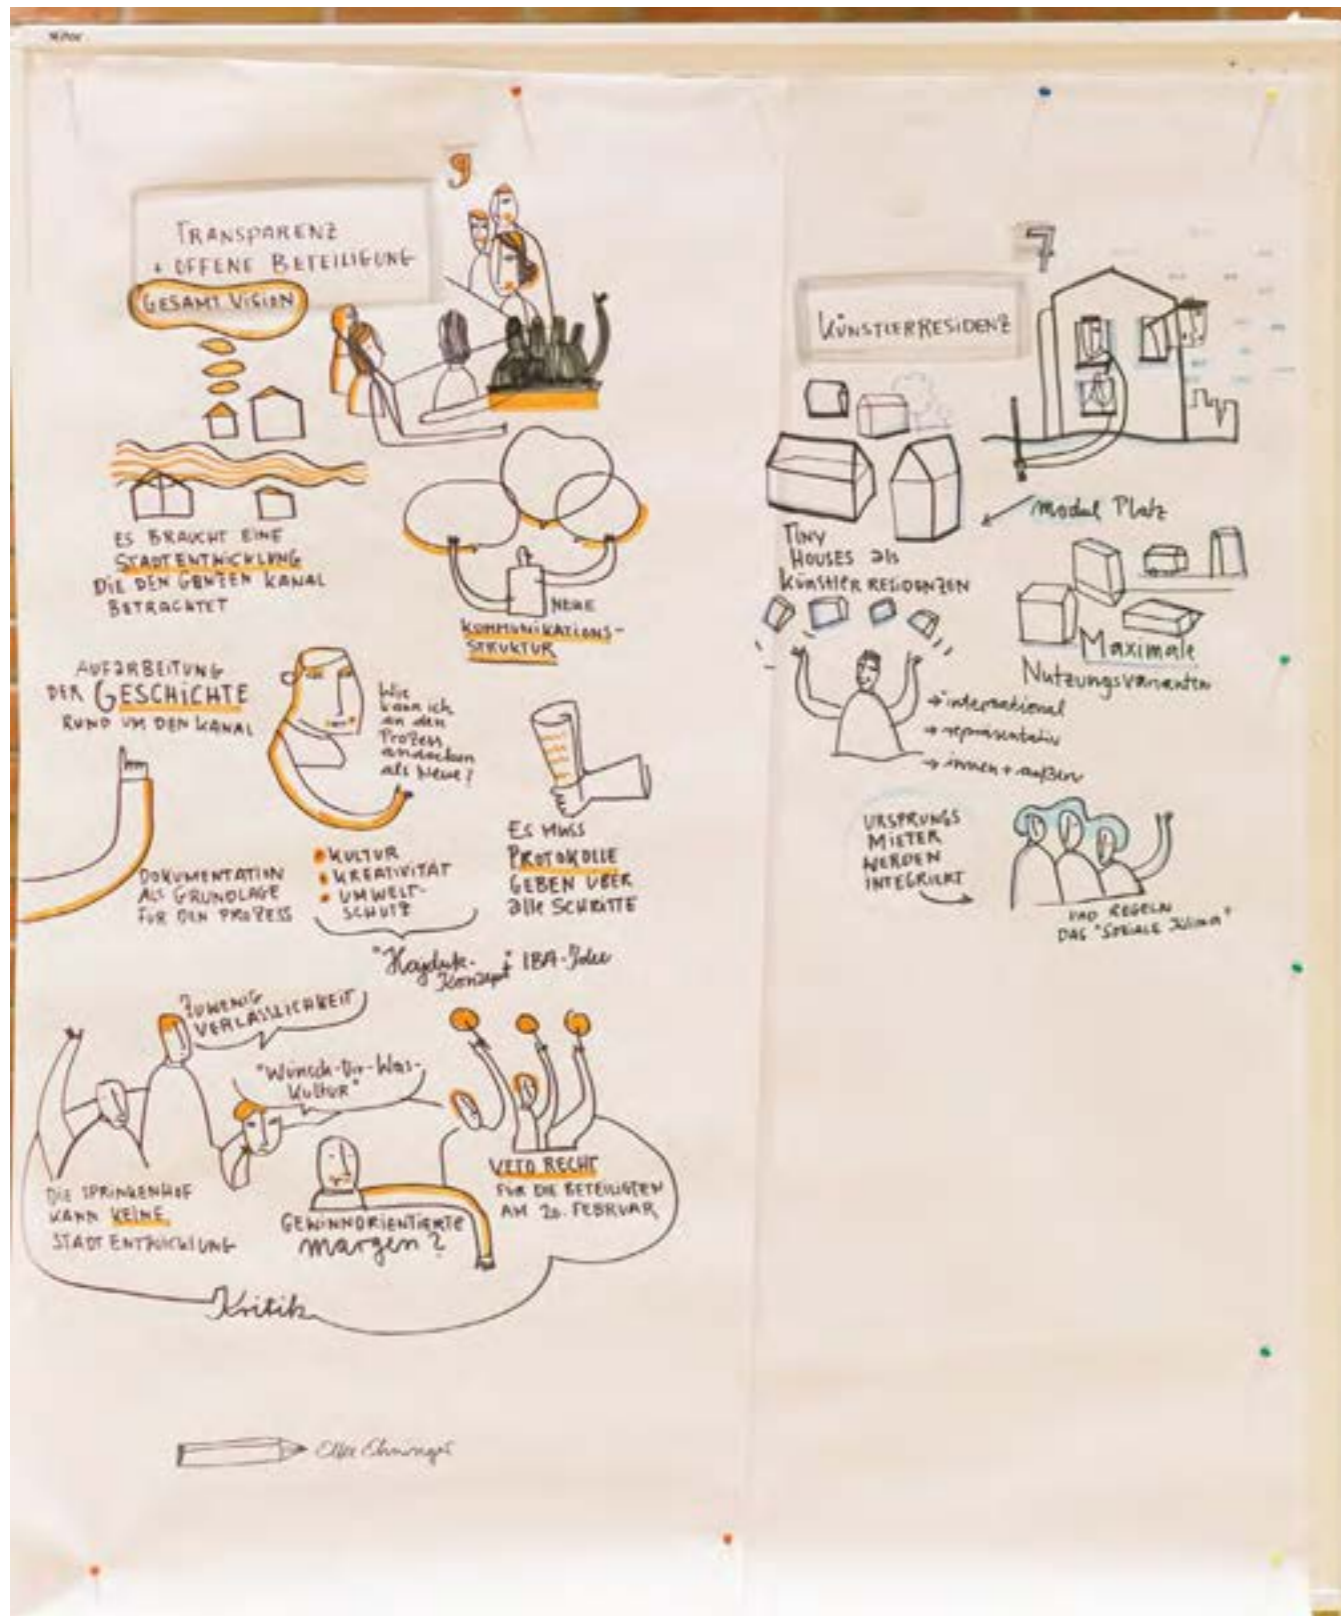 9
TRANSPARENZ
+ OFFENE BETEILIGUNG
GESAMT VISION
ES BRAUCHT EINE
STADTENTWICKLUNG
DIE DEN GANZEN KANAL
BETRACHTET
NEUE
KOMMUNIKATIONS-
STRUKTUR
AUFARBEITUNG
DER GESCHICHTE
RUND UM DEN KANAL
Wie
kann ich
an den
Prozess
andocken
als Neue?
DOKUMENTATION
ALS GRUNDLAGE
FÜR DEN PROZESS
• KULTUR
• KREATIVITÄT
• UMWELT-
SCHUTZ
ES MUSS
PROTOKOLLE
GEBEN ÜBER
alle SCHRITTE
"Hajduk-
Konzept" + IBA-Idee
ZUWENIG
VERLÄSSLICHKEIT
"Wünsch-Dir-Was-
Kultur"
DIE SPRINKENHOF
KANN KEINE
STADTENTWICKLUNG
GEWINNORIENTIERTE
margen?
VETO RECHT
FÜR DIE BETEILIGTEN
AM 20. FEBRUAR
Kritik
7
KÜNSTLERRESIDENZ
modul Platz
TINY
HOUSES als
KünstlER RESIDENZEN
Maximale
Nutzungsvarianten
→ international
→ repräsentativ
→ innen + außen
URSPRUNGS
MIETER
WERDEN
INTEGRIERT
UND REGELN
DAS "SOZIALE Klima"